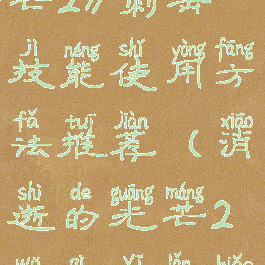 芒2》刺客
jì néng shǐ yòng fāng
技能使用方
fǎ tuī jiàn xiāo
法推荐（消
shì de guāng máng
逝的光芒2